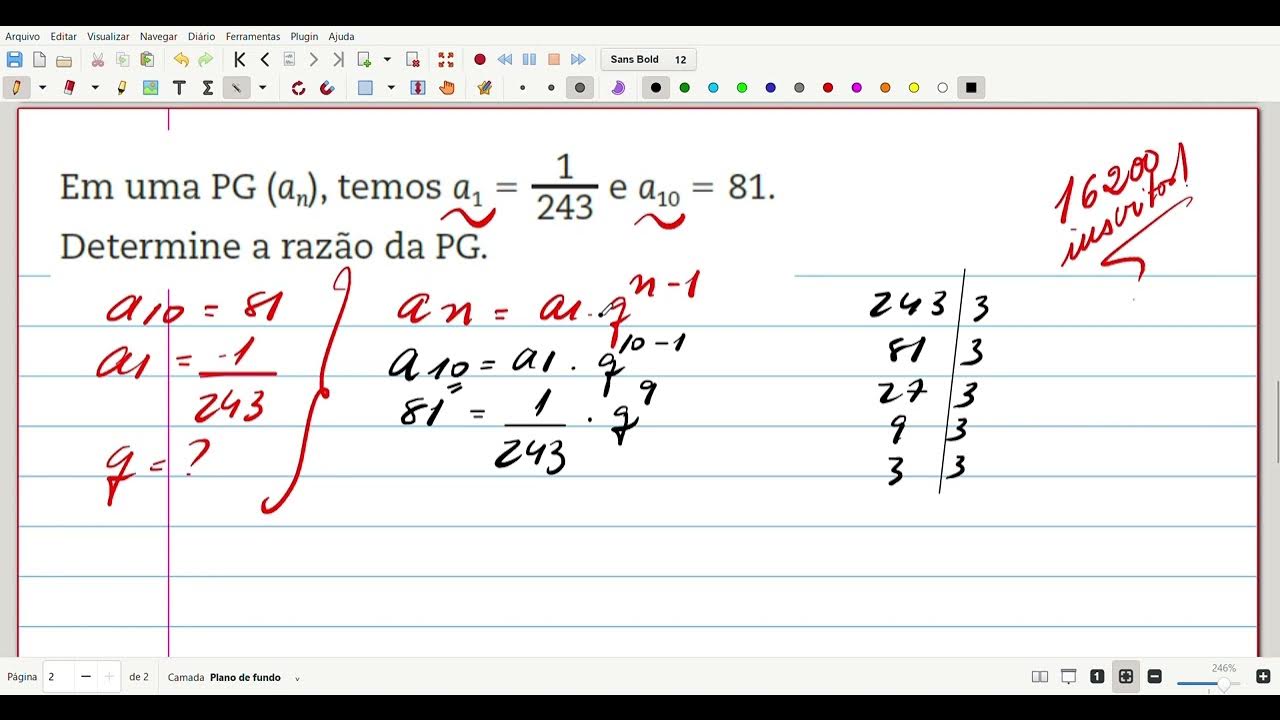 Arquivo Editar Visualizar Navegar Diário Ferramentas Plugin Ajuda
Sans Bold 12
Em uma PG (aₙ), temos a₁ = 1/243 e a₁₀ = 81.
Determine a razão da PG.
16200
inscritos!
a10 = 81
a1 = 1/243
q = ?
an = a1 . q^n-1
a10 = a1 . q^10-1
81 = 1/243 . q^9
243 | 3
81 | 3
27 | 3
9 | 3
3 | 3
Página 2 de 2 Camada Plano de fundo
1
246%